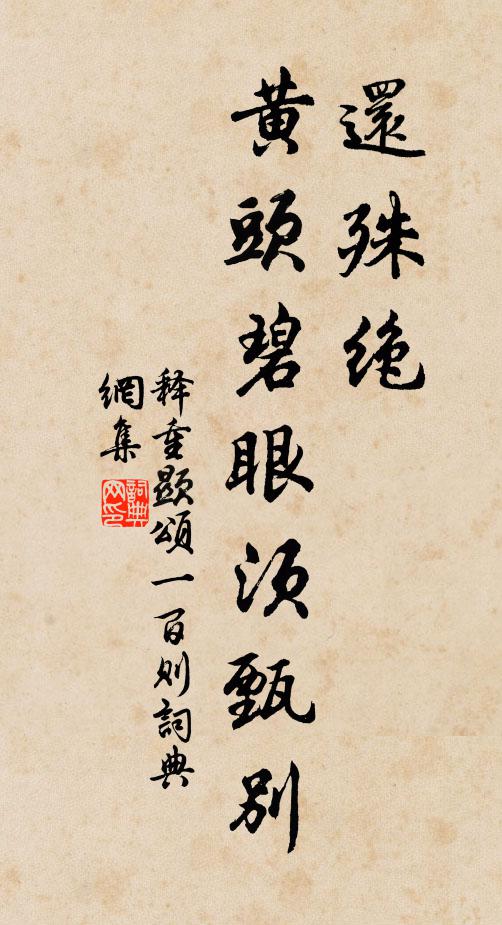 還殊絶
黄頭碧眼須甄别
释重顯頌一百则詞典
網集
詞典網印